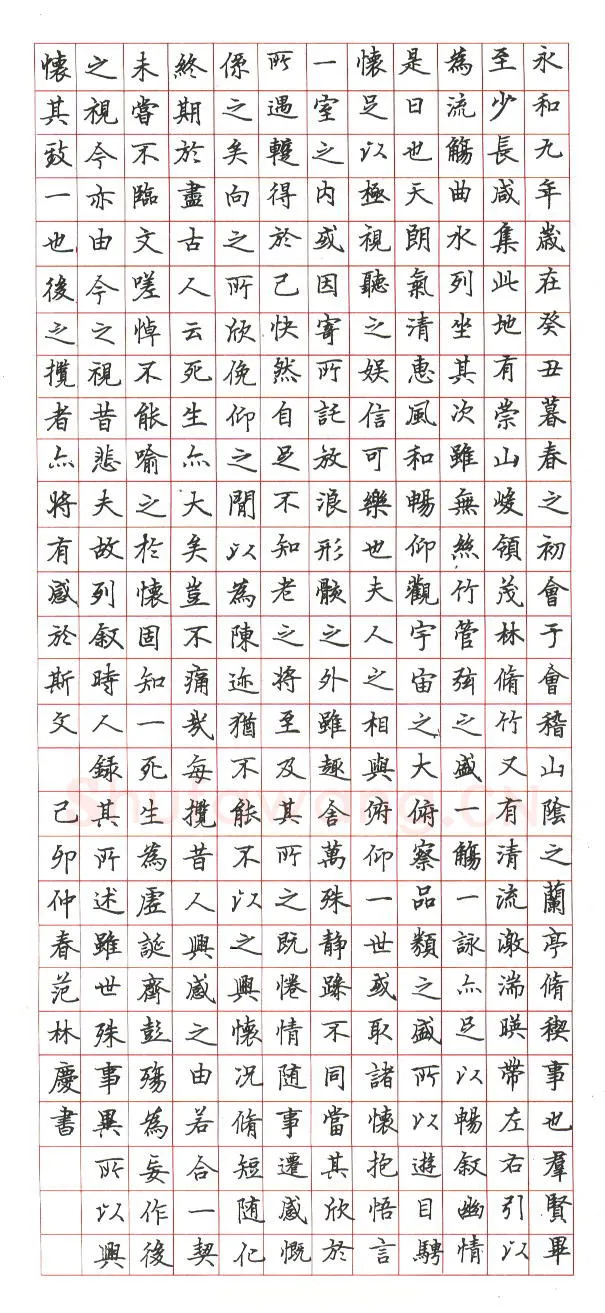 永和九年歲在癸丑暮春之初會于會稽山陰之蘭亭脩稧事也羣賢畢
至少長咸集此地有崇山峻領茂林脩竹又有清流激湍暎帶左右引以
為流觴曲水列坐其次雖無絲竹管弦之盛一觴一詠亦足以暢敘幽情
是日也天朗氣清惠風和暢仰觀宇宙之大俯察品類之盛所以遊目騁
懷足以極視聽之娛信可樂也夫人之相與俯仰一世或取諸懷抱悟言
一室之內或因寄所託放浪形骸之外雖趣舍萬殊静躁不同當其欣於
所遇蹔得於己快然自足不知老之將至及其所之既惓情随事遷感慨
係之矣向之所欣俛仰之閒以為陳迹猶不能不以之興懷況脩短随化
終期於盡古人云死生亦大矣豈不痛哉每攬昔人興感之由若合一契
未嘗不臨文嗟悼不能喻之於懷固知一死生為虛誕齊彭殤為妄作後
之視今亦由今之視昔悲夫故列敘時人錄其所述雖世殊事異所以興
懷其致一也後之攬者亦將有感於斯文 己卯仲春范林慶書
Shufawang.CN